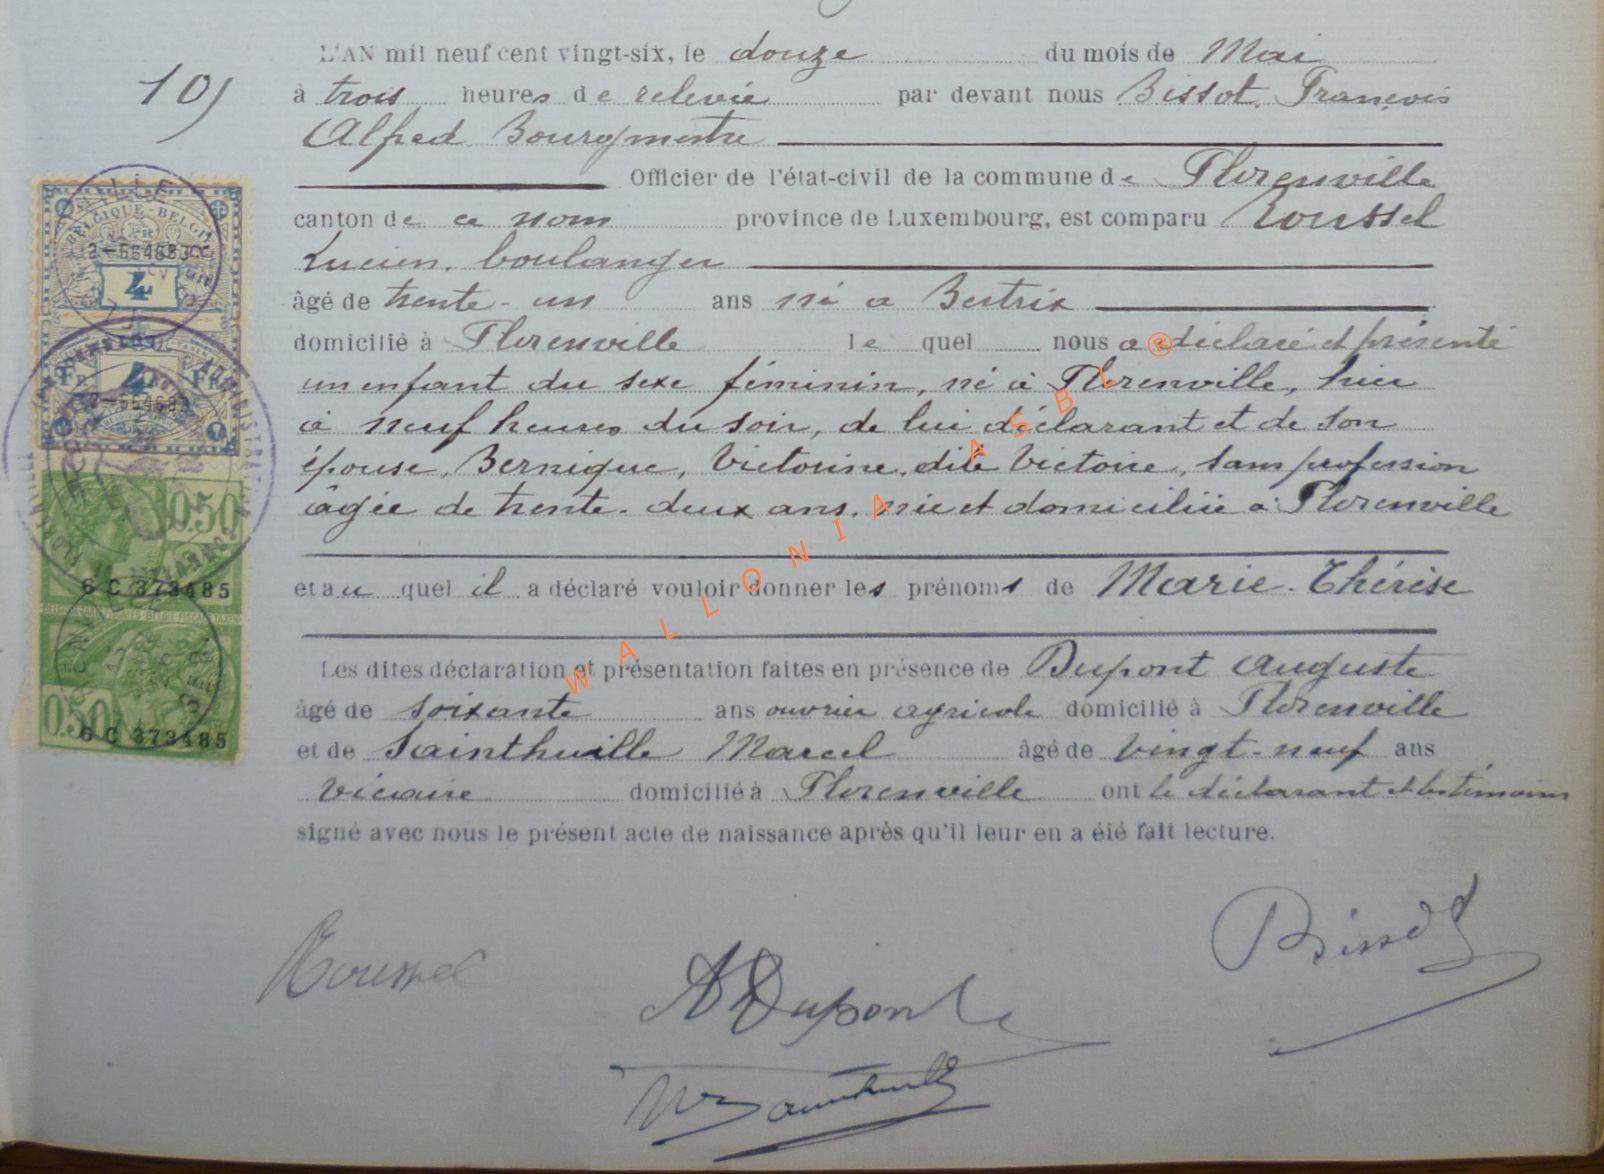 10)
L'AN mil neuf cent vingt-six, le douze du mois de Mai
à trois heures de relevée par devant nous Bissot, François
Alfred Bourgmestre
Officier de l'état-civil de la commune de Florenville
canton de ce nom province de Luxembourg, est comparu Roussel
Lucien, boulanger
âgé de trente-un ans né à Bertrix
domicilié à Florenville le quel nous a déclaré et présenté
un enfant du sexe féminin, né à Florenville, hier
à neuf heures du soir, de lui déclarant et de son
épouse, Bernique, Victorine, dite Victoire, sans profession
âgée de trente-deux ans, née et domiciliée à Florenville
et au quel il a déclaré vouloir donner les prénoms de Marie-Thérèse
Les dites déclaration et présentation faites en présence de Dupont Auguste
âgé de soixante ans ouvrier agricole domicilié à Florenville
et de Sainthuille Marcel âgé de vingt-neuf ans
Vicaire domicilié à Florenville ont le déclarant et les témoins
signé avec nous le présent acte de naissance après qu'il leur en a été fait lecture.
Roussel
ADupont
Bissot
BELGIQUE BELGIË
4
FR 4 FR
0.50
6 C 373485
0.50
6 C 373485
WALLONIA ASBL ®